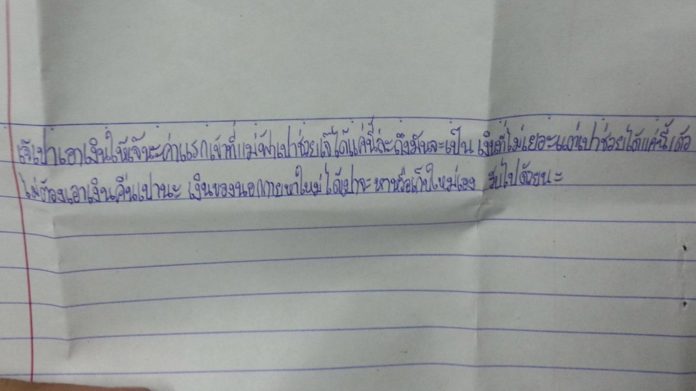 เจ๊เปาเอาเงินให้เจ๊นะค่าแรกเข้าที่แม่ฟ้าเปาช่วยเจ๊ได้แค่นี้ล่ะถึงมันจะเป็น เงินที่ไม่เยอะแต่เปาช่วยได้แค่นี้เด้อ
ไม่ต้องเอาเงินคืนเปานะ เงินของนอกกายหาใหม่ได้เปาจะหาหรือเก็บใหม่เอง รับไปด้วยนะ